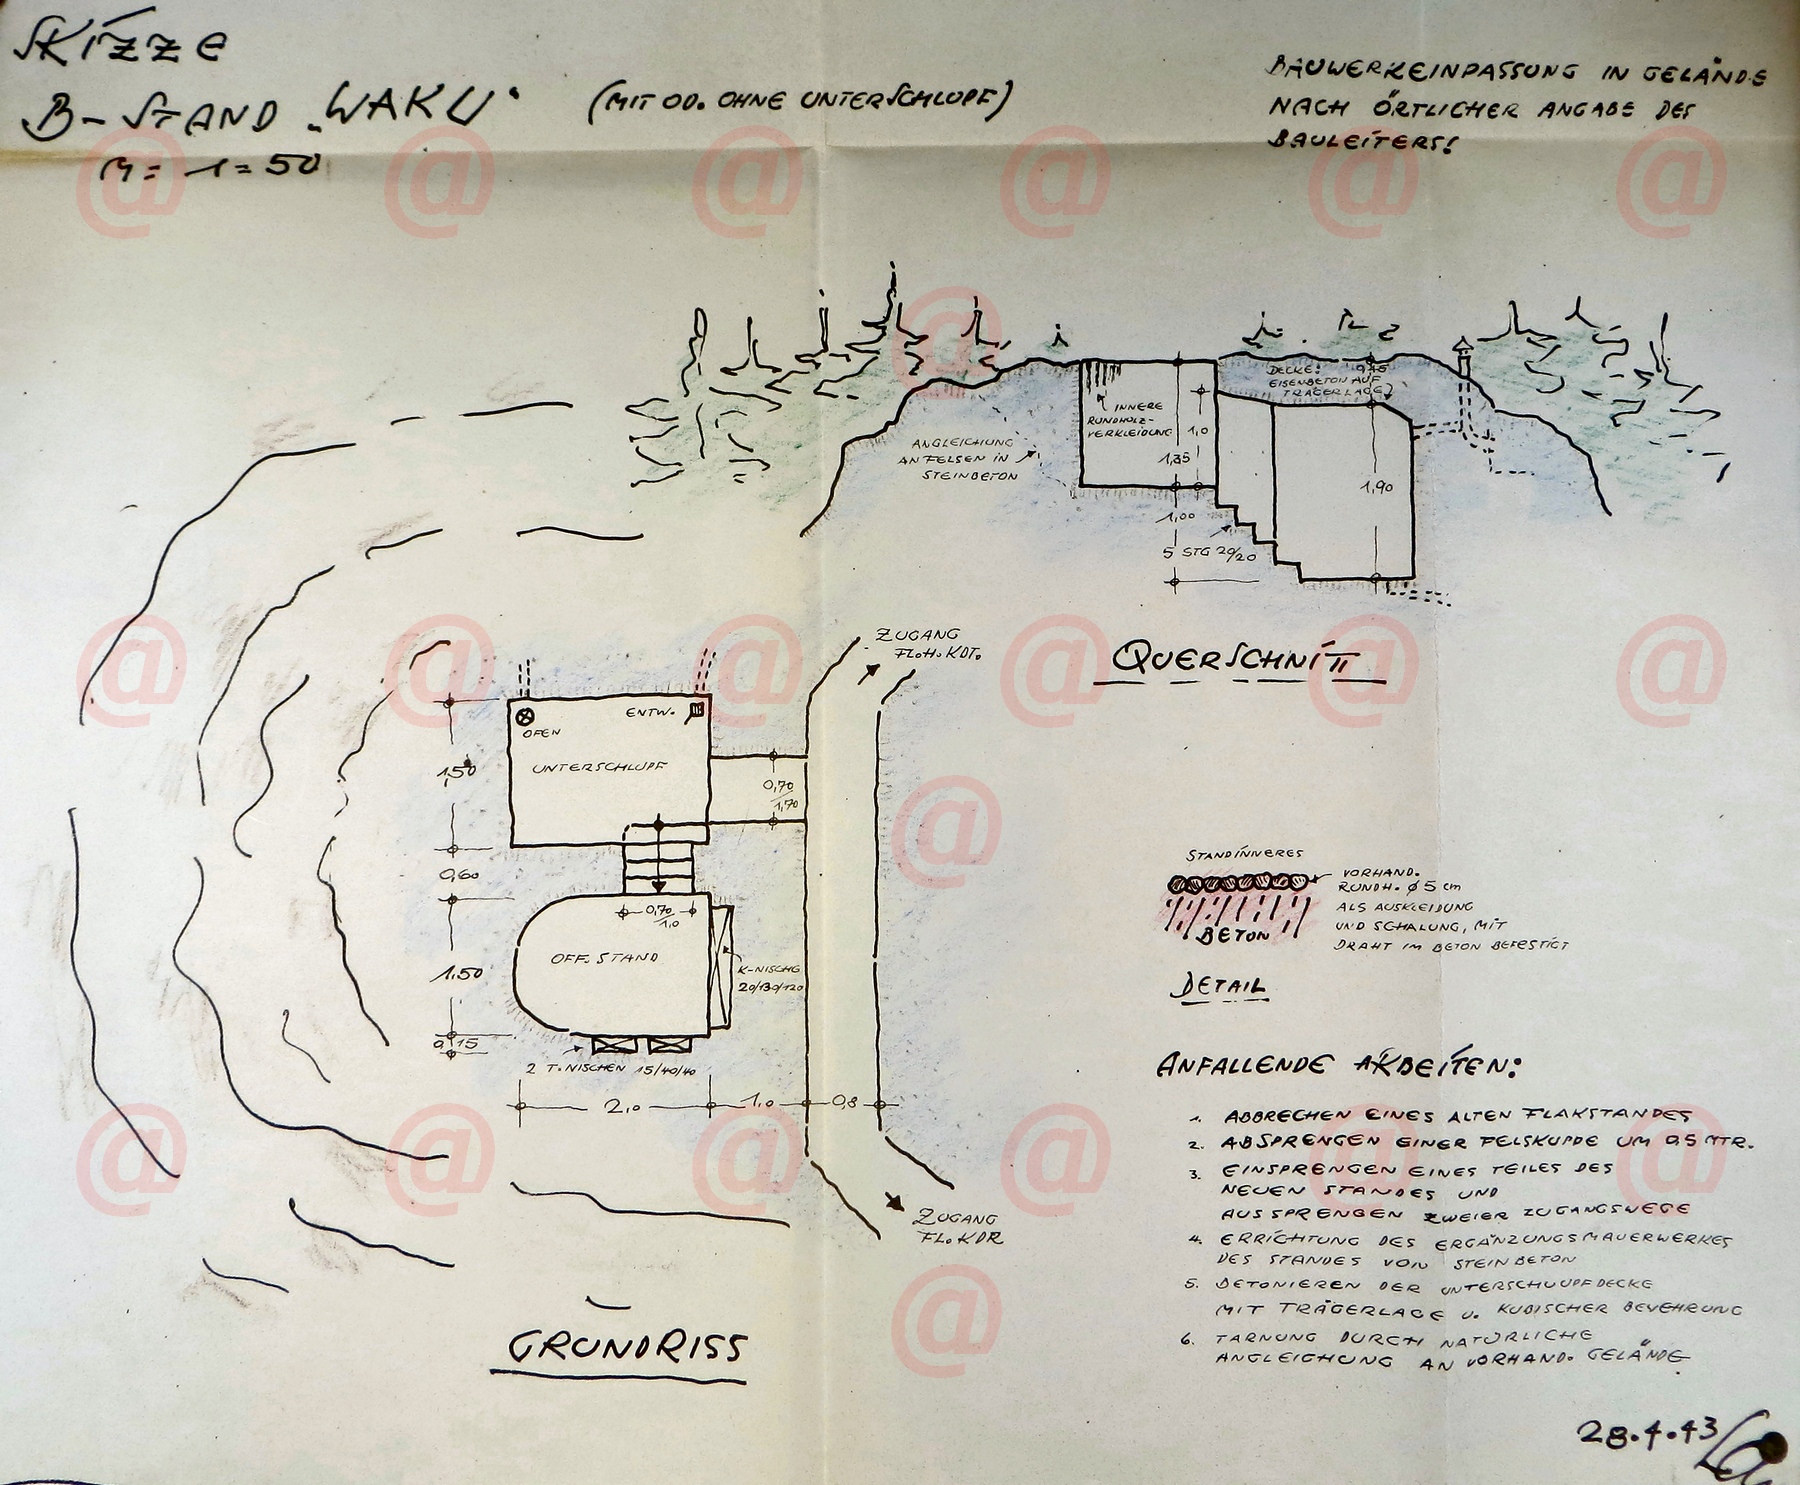 SKIZZE
B-STAND „WAKU" (MIT OD. OHNE UNTERSCHLUPF)
M = 1=50
BAUWERKEINPASSUNG IN GELÄNDE
NACH ÖRTLICHER ANGABE DES
BAULEITERS!
DECKE: 0,45
EISENBETON AUF
TRÄGERLAGE
INNERE
RUNDHOLZ-
VERKLEIDUNG
1,0
1,35
ANGLEICHUNG
AN FELSEN IN
STEINBETON
1,90
1,00
5 STG 20/20
QUERSCHNITT
ZUGANG
FL.H.KDT.
ENTW.
OFEN
UNTERSCHLUPF
1,50
0,70
1,70
0,60
0,70
1,0
OFF. STAND
1,50
K-NISCHE
20/130/120
0,15
2 T.NISCHEN 15/40/40
2,0 1,0 0,8
ZUGANG
FL.KDR
GRUNDRISS
STANDINNERES
VORHAND.
RUNDH. Ø 5 cm
ALS AUSKLEIDUNG
UND SCHALUNG, MIT
DRAHT IM BETON BEFESTIGT
BETON
DETAIL
ANFALLENDE ARBEITEN:
1. ABBRECHEN EINES ALTEN FLAKSTANDES
2. ABSPRENGEN EINER FELSKUPPE UM 0,5 MTR.
3. EINSPRENGEN EINES TEILES DES
NEUEN STANDES UND
AUSSPRENGEN ZWEIER ZUGANGSWEGE
4. ERRICHTUNG DES ERGÄNZUNGSMAUERWERKES
DES STANDES VON STEINBETON
5. BETONIEREN DER UNTERSCHLUPFDECKE
MIT TRÄGERLAGE U. KUBISCHER BEWEHRUNG
6. TARNUNG DURCH NATÜRLICHE
ANGLEICHUNG AN VORHAND. GELÄNDE
28.4.43